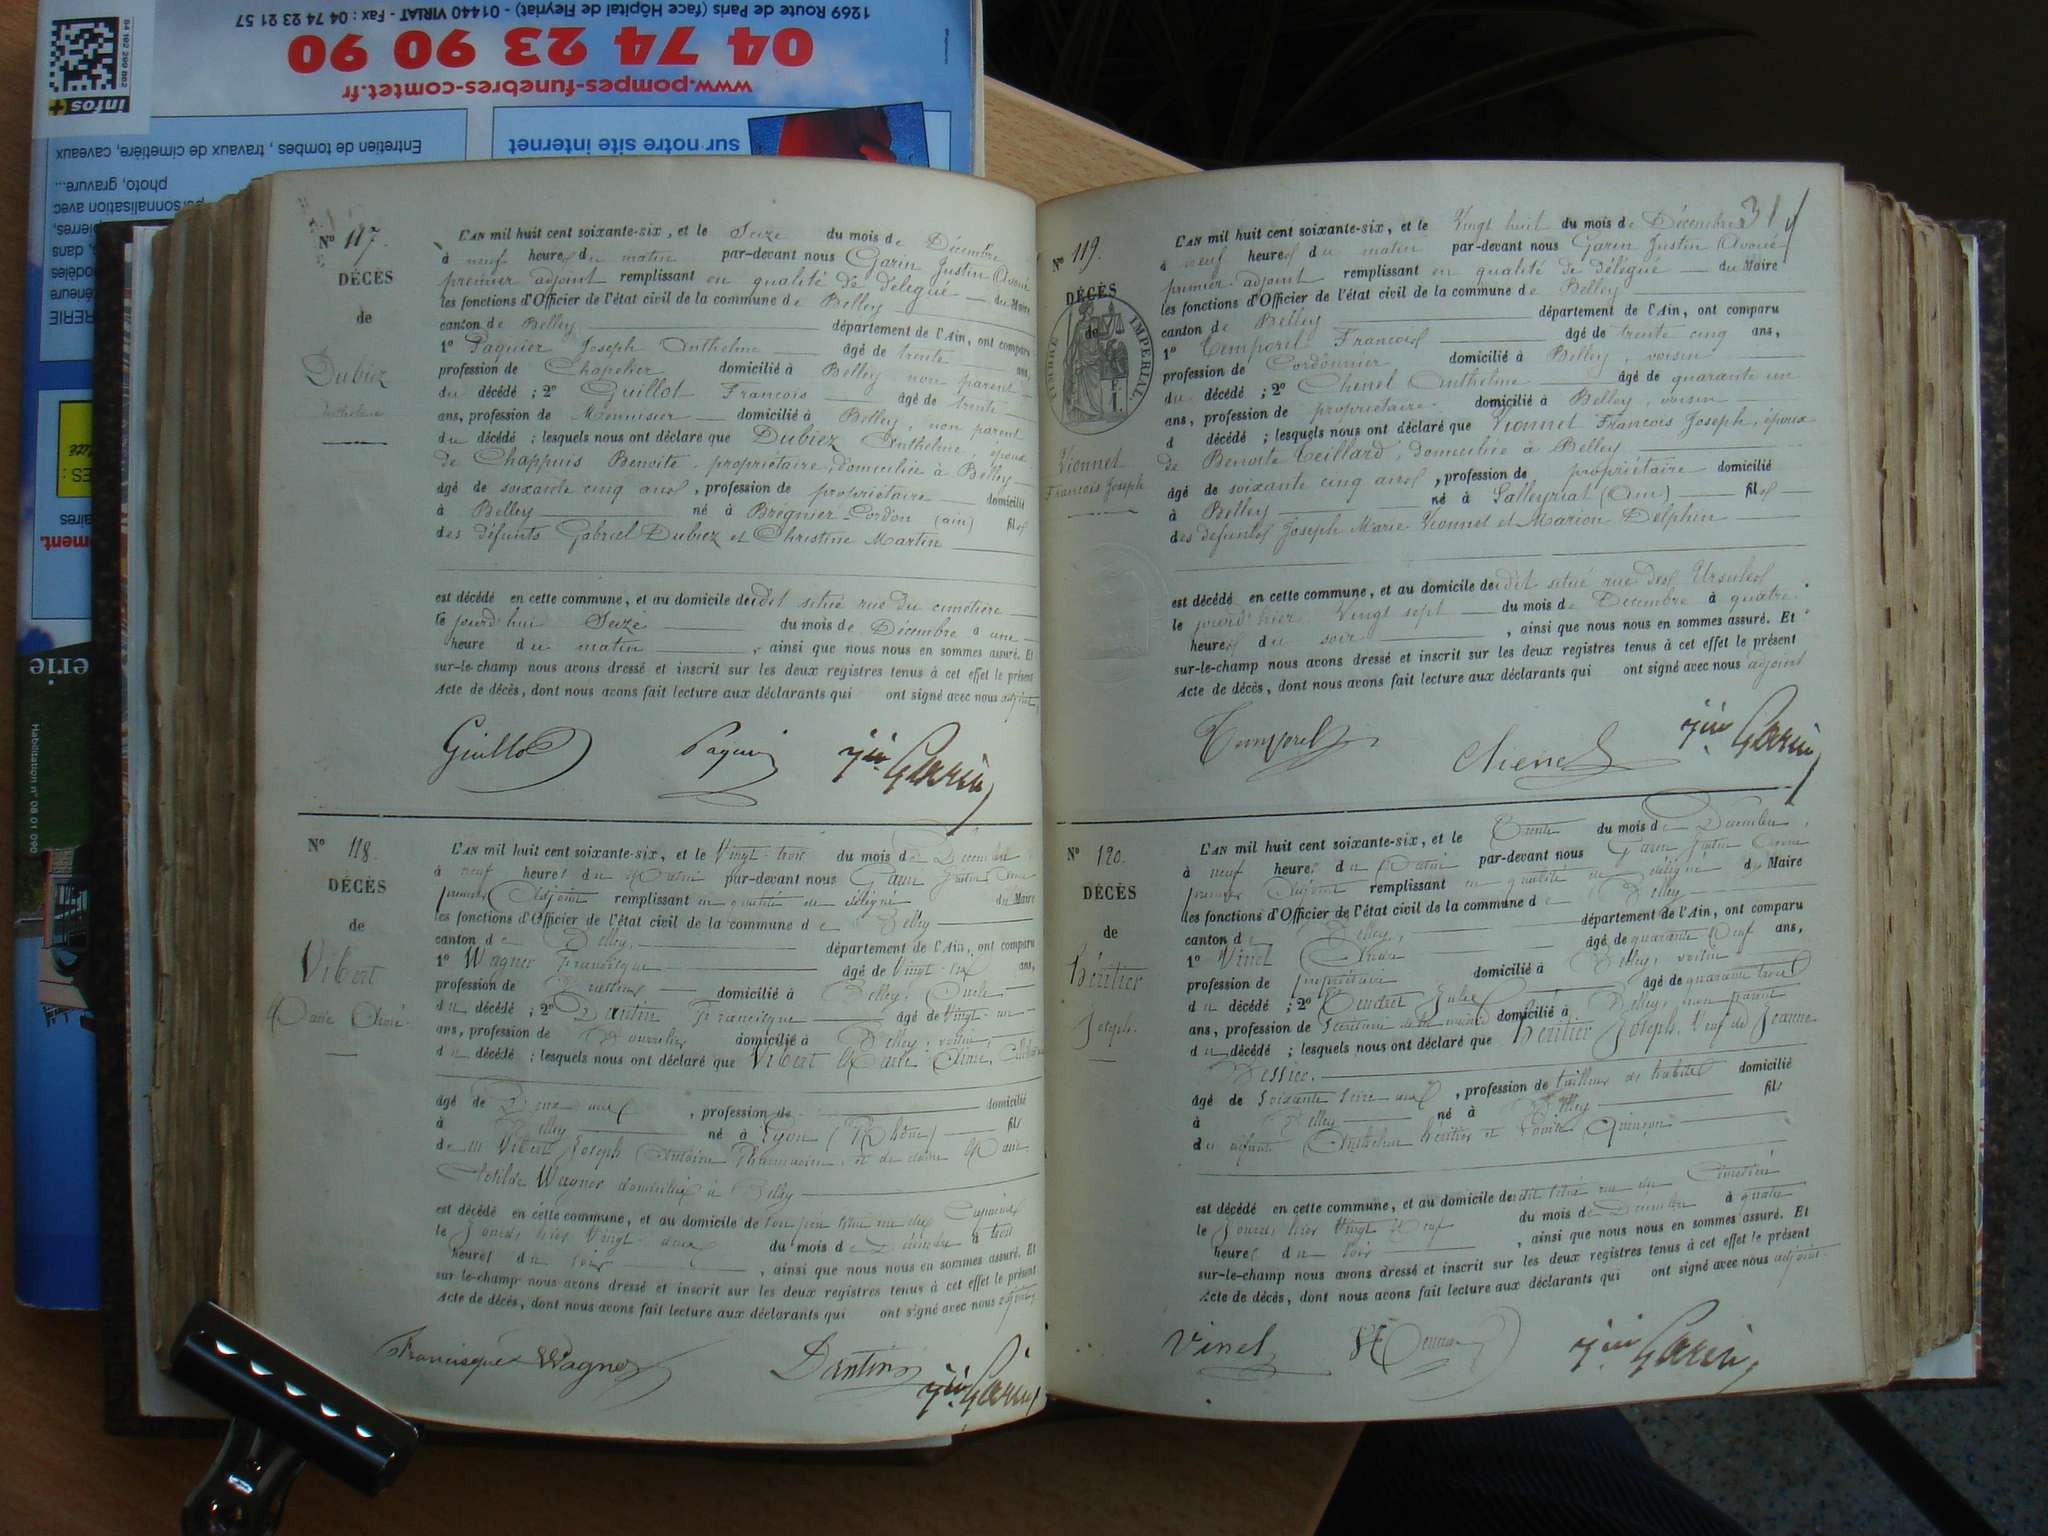 1269 Route de Paris (face Hôpital de Fleyriat) - 01440 VIRIAT - Fax : 04 74 23 21 57
04 74 23 90 90
www.pompes-funebres-comtet.fr
sur notre site internet
infos+
Entretien de tombes, travaux de cimetière, caveaux
photo, gravure...
personnalisation avec
Habilitation n° 08 01 090
N° 117.
DÉCÈS
de
Dubiez
Anthelme
L'AN mil huit cent soixante-six, et le Seize du mois de Décembre
à neuf heures du matin par-devant nous Garin Justin Avoué
premier adjoint remplissant en qualité de délégué du Maire
les fonctions d'Officier de l'état civil de la commune de Belley
canton de Belley département de l'Ain, ont comparu
1° Paquier Joseph Anthelme âgé de trente ans,
profession de Chapelier domicilié à Belley non parent
du décédé ; 2° Guillot François âgé de trente
ans, profession de Menuisier domicilié à Belley, non parent
du décédé ; lesquels nous ont déclaré que Dubiez Anthelme, époux
de Chappuis Benoite, propriétaire, domiciliée à Belley
âgé de soixante cinq ans, profession de propriétaire domicilié
à Belley né à Bregnier Cordon (ain) fils
des défunts Gabriel Dubiez et Christine Martin
est décédé en cette commune, et au domicile dudit situé rue du cimetière
le jourd'hui Seize du mois de Décembre à une
heure du matin, ainsi que nous nous en sommes assuré. Et
sur-le-champ nous avons dressé et inscrit sur les deux registres tenus à cet effet le présent
Acte de décès, dont nous avons fait lecture aux déclarants qui ont signé avec nous adjoint.
Guillot Paquier Jin Garin
N° 118.
DÉCÈS
de
Vibert
Marie
L'AN mil huit cent soixante-six, et le Vingt-trois du mois de Décembre
à neuf heures du Matin par-devant nous Garin Justin Avoué
premier Adjoint remplissant en qualité de délégué du Maire
les fonctions d'Officier de l'état civil de la commune de Belley
canton de Belley, département de l'Ain, ont comparu
1° Wagner Francisque âgé de Vingt-six ans,
profession de domicilié à Belley, Oncle
du décédé ; 2° Dantin Francisque âgé de Vingt-un
ans, profession de Bourrelier domicilié à Belley, voisin
du décédé ; lesquels nous ont déclaré que Vibert Marie
âgé de Deux ans, profession de domicilié
à Belley né à Lyon (Rhône) fils
de M Vibert Joseph Antoine Pharmacien, et de dame Marie
Clotilde Wagner domiciliés à Belley
est décédé en cette commune, et au domicile de son père situé rue des Capucins
le Jourd'hier Vingt-deux du mois de Décembre à trois
heures du soir, ainsi que nous nous en sommes assuré. Et
sur-le-champ nous avons dressé et inscrit sur les deux registres tenus à cet effet le présent
Acte de décès, dont nous avons fait lecture aux déclarants qui ont signé avec nous adjoint.
Francisque Wagner Dantin Jin Garin
31
N° 119.
DÉCÈS
de
TIMBRE IMPÉRIAL
Vionnet
François Joseph
L'AN mil huit cent soixante-six, et le Vingt huit du mois de Décembre
à neuf heures du matin par-devant nous Garin Justin Avoué
premier adjoint remplissant en qualité de délégué du Maire
les fonctions d'Officier de l'état civil de la commune de Belley
canton de Belley département de l'Ain, ont comparu
1° Temporel François âgé de trente cinq ans,
profession de Cordonnier domicilié à Belley, voisin
du décédé ; 2° Chenel Anthelme âgé de quarante un
ans, profession de propriétaire domicilié à Belley, voisin
d décédé ; lesquels nous ont déclaré que Vionnet François Joseph, époux
de Benoite Teillard, domiciliée à Belley
âgé de soixante cinq ans, profession de propriétaire domicilié
à Belley né à Talleyriat (Ain) fils
des défunts Joseph Marie Vionnet et Marion Delphin
est décédé en cette commune, et au domicile dudit situé rue des Ursules
le jourd'hier Vingt sept du mois de Décembre à quatre
heures du soir, ainsi que nous nous en sommes assuré. Et
sur-le-champ nous avons dressé et inscrit sur les deux registres tenus à cet effet le présent
Acte de décès, dont nous avons fait lecture aux déclarants qui ont signé avec nous adjoint
Temporel Chenel Jin Garin
N° 120.
DÉCÈS
de
Héritier
Joseph.
L'AN mil huit cent soixante-six, et le Trente du mois de Décembre,
à neuf heures du Matin par-devant nous Garin Justin Avoué
premier Adjoint remplissant en qualité de délégué du Maire
les fonctions d'Officier de l'état civil de la commune de Belley
canton de Belley, département de l'Ain, ont comparu
1° Vinel âgé de quarante Neuf ans,
profession de propriétaire domicilié à Belley, voisin
du décédé ; 2° Jules âgé de quarante trois
ans, profession de Secrétaire de la mairie domicilié à Belley, non parent
du décédé ; lesquels nous ont déclaré que Héritier Joseph, Veuf de Jeanne
Tessier.
âgé de Soixante Seize ans, profession de tailleur de habits domicilié
à Belley né à Belley fils
des défunts Anthelme Héritier et Quinson
est décédé en cette commune, et au domicile dudit situé rue du Cimetière
le Jourd'hier Vingt Neuf du mois de Décembre à quatre
heures du soir, ainsi que nous nous en sommes assuré. Et
sur-le-champ nous avons dressé et inscrit sur les deux registres tenus à cet effet le présent
Acte de décès, dont nous avons fait lecture aux déclarants qui ont signé avec nous adjoint.
Vinel Jin Garin